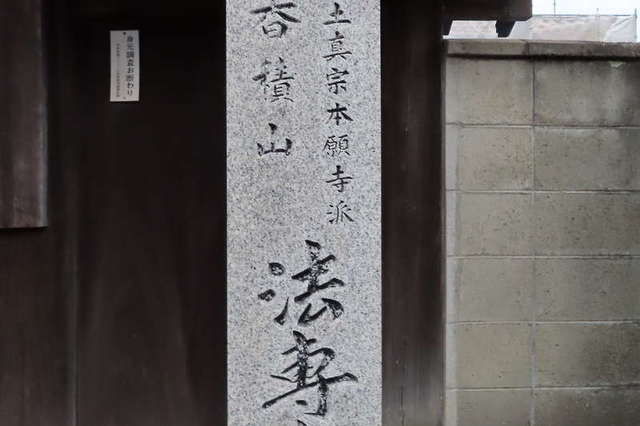 土真宗本願寺派
香積山
法専
身元調査お断わり